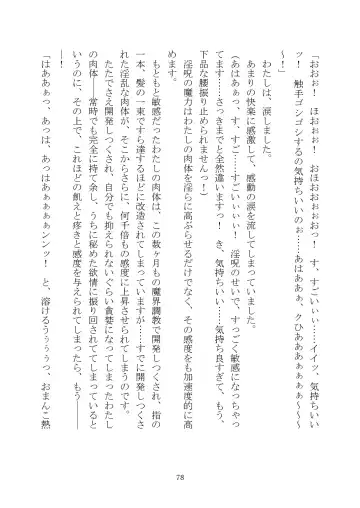 「おおぉ！　ほおぉぉ！　おほおぉぉぉっ！　す、すごいぃぃ……イイッ、気持ちいい
ッ！　触手ゴシゴシするの気持ちいいのぉ……あはあぁぁ、クひあああぁぁぁぁ～～
～」
　わたしは、涙しました。
　あまりの快楽に感激して、感動の涙を流してしまっていました。
（あはぁぁっ、す、すご……すごいぃぃ！　淫呪のせいで、すっごく敏感になっちゃっ
てます……さっきまでと全然違いますっ！　き、気持ちいい……気持ち良すぎて、もう、
下品な腰振り止められませんっ！）
　淫呪の魔力はわたしの肉体を淫らに高ぶらせるだけでなく、その感度をも加速度的に高
めます。
　もともと敏感だったわたしの肉体は、この数ヶ月もの魔界調教で開発しつくされ、指の
一本、髪の一束ですら達するほどに改造されてしまっていますが……すでに開発しつくさ
れた淫乱な肉体が、そこからさらに、何千倍もの感度に上昇させられてしまうのです。
　ただでさえ開発しつくされ、自分でも抑えられないぐらい貪婪になってしまったわたし
の肉体――常時でも完全に持て余し、うちに秘めた欲情に振り回されてしまっていると
いうのに、その上で、これほどの飢えと疼きと感度を与えられてしまったら、もう――
――！
「はああぁっ、あっは、あっはあぁぁぁぁンンッ！　と、溶けるうぅぅぅっ、おまんこ熱
78